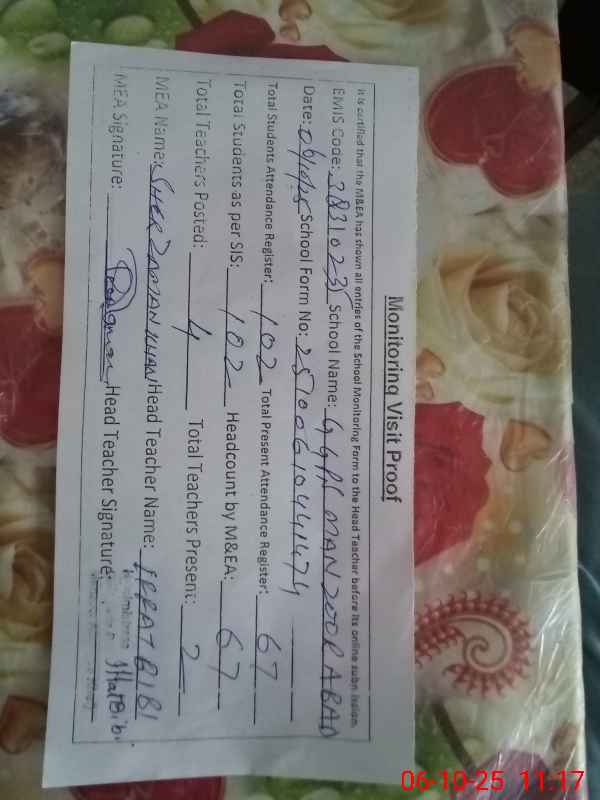 Monitoring Visit Proof
It is certified that the M&EA has shown all entries of the School Monitoring Form to the Head Teacher before its online submission.
EMIS Code: 38310235 School Name: GGPS MANZOORABAD
Date: School Form No: 251006104414 74
Total Students Attendance Register: 102 Total Present Attendance Register: 67
Total Students as per SIS: 102 Headcount by M&EA: 67
Total Teachers Posted: 4 Total Teachers Present: 2
MEA Name: SHER ZAMAN KHAN Head Teacher Name: IFFAT BIBI
MEA Signature: Head Teacher Signature: Iffat Bibi
06-10-25 11:17